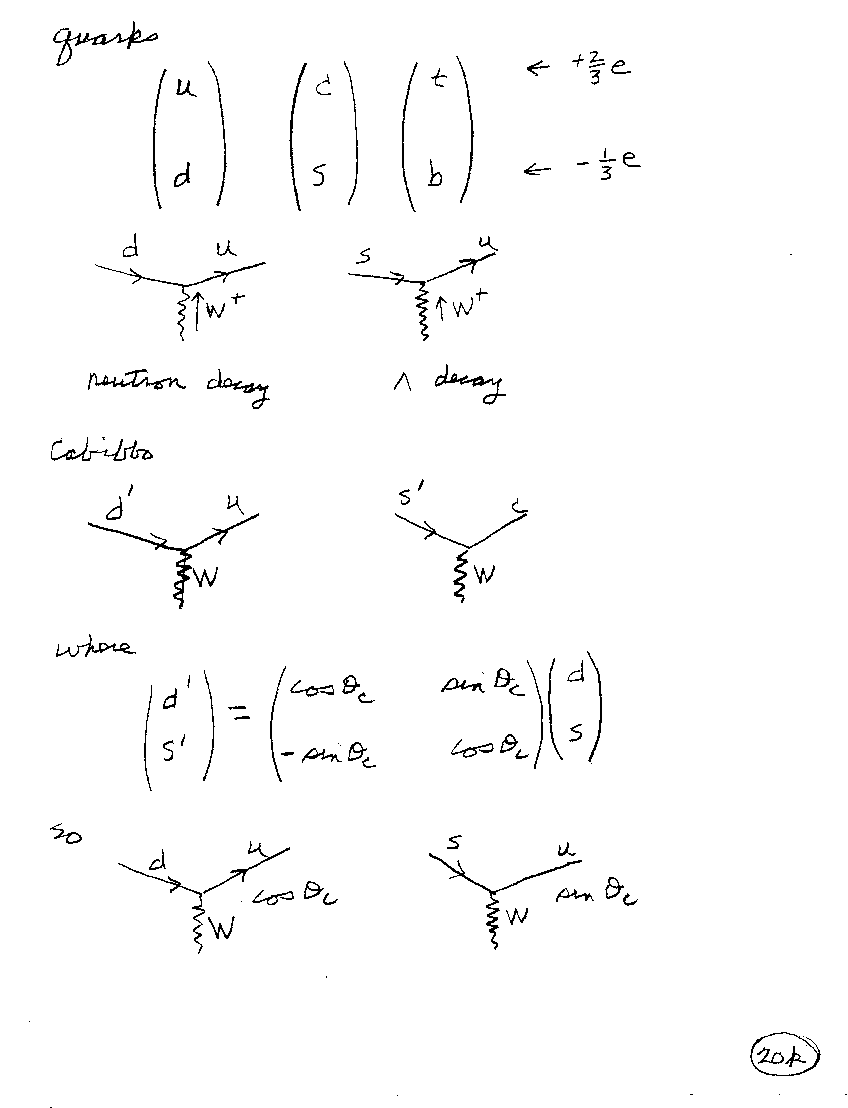 quarks
u c t ← +2/3 e
d s b ← -1/3 e
d u s u
↑W+ ↑W+
neutron decay Λ decay
Cabibbo
d' u s' c
W W
where
d' = cosθc sinθc d
s' -sinθc cosθc s
so
d u s u
W cosθc W sinθc
20k